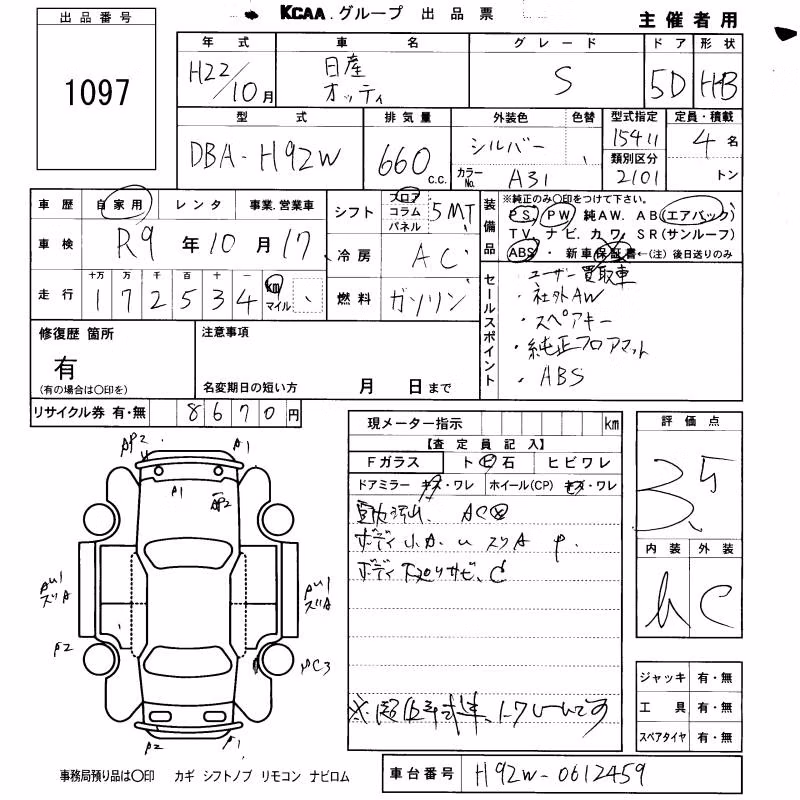 KCAA.グループ 出品票
主催者用
出品番号
1097
年式 車名 グレード ドア 形状
H22/10月 日産 オッティ S 5D HB
型式 排気量 外装色 色替 型式指定 定員・積載
DBA-H92W 660 c.c. シルバー 15411 4名
カラーNo. A31 類別区分 2101 トン
車歴 自家用 レンタ 事業.営業車
シフト フロア コラム パネル 5MT
車検 R9年10月17
冷房 AC
走行 十万 万 千 百 十 一
172534 km マイル
燃料 ガソリン
装備品 ※純正のみ○印をつけて下さい。
PS. PW 純AW. AB(エアバック)
TV. ナビ. カワ. SR(サンルーフ)
ABS・新車保証書←(注)後日送りのみ
セールスポイント
ユーザー買取車
・社外AW
・スペアキー
・純正フロアマット
・ABS
修復歴 箇所
有
(有の場合は○印を)
注意事項
名変期日の短い方 月 日まで
リサイクル券 有・無 8670円
現メーター指示 km
【査定員記入】
Fガラス ト ビ 石 ヒビワレ
ドアミラー キズ・ワレ ホイール(CP) キズ・ワレ
ボディ
ボディ
評価点
3.5
内装 外装
C
ジャッキ 有・無
工具 有・無
スペアタイヤ 有・無
AP2 A1
A1
AP2
AU1 スリA
AU1 スリA
A2
AC3
A2 A1
事務局預り品は○印 カギ シフトノブ リモコン ナビロム
車台番号 H92W-0612459